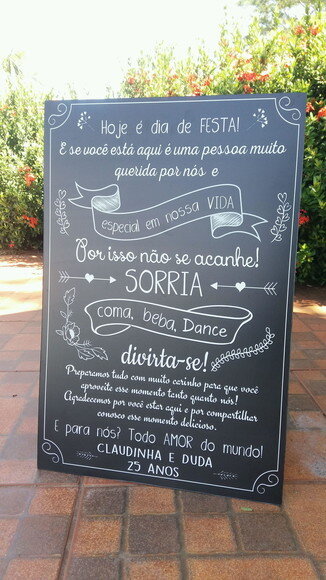 Hoje é dia de FESTA!
E se você está aqui é uma pessoa muito
querida por nós e
especial em nossa VIDA
Por isso não se acanhe!
SORRIA
coma, beba, Dance
divirta-se!
Preparamos tudo com muito carinho para que você
aproveite esse momento tanto quanto nós!
Agradecemos por você estar aqui e por compartilhar
conosco esse momento delicioso.
E para nós? Todo AMOR do mundo!
CLAUDINHA E DUDA
25 ANOS